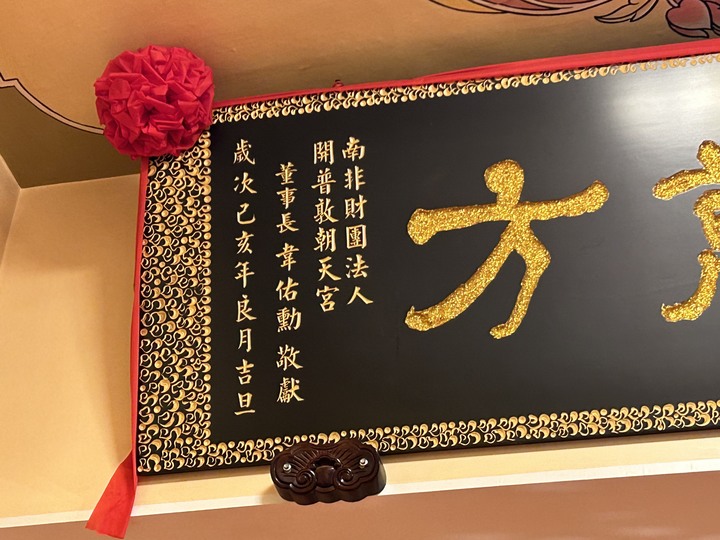 方
南非財團法人
開普敦朝天宮
董事長 韋佑勳 敬獻
歲次己亥年良月吉旦